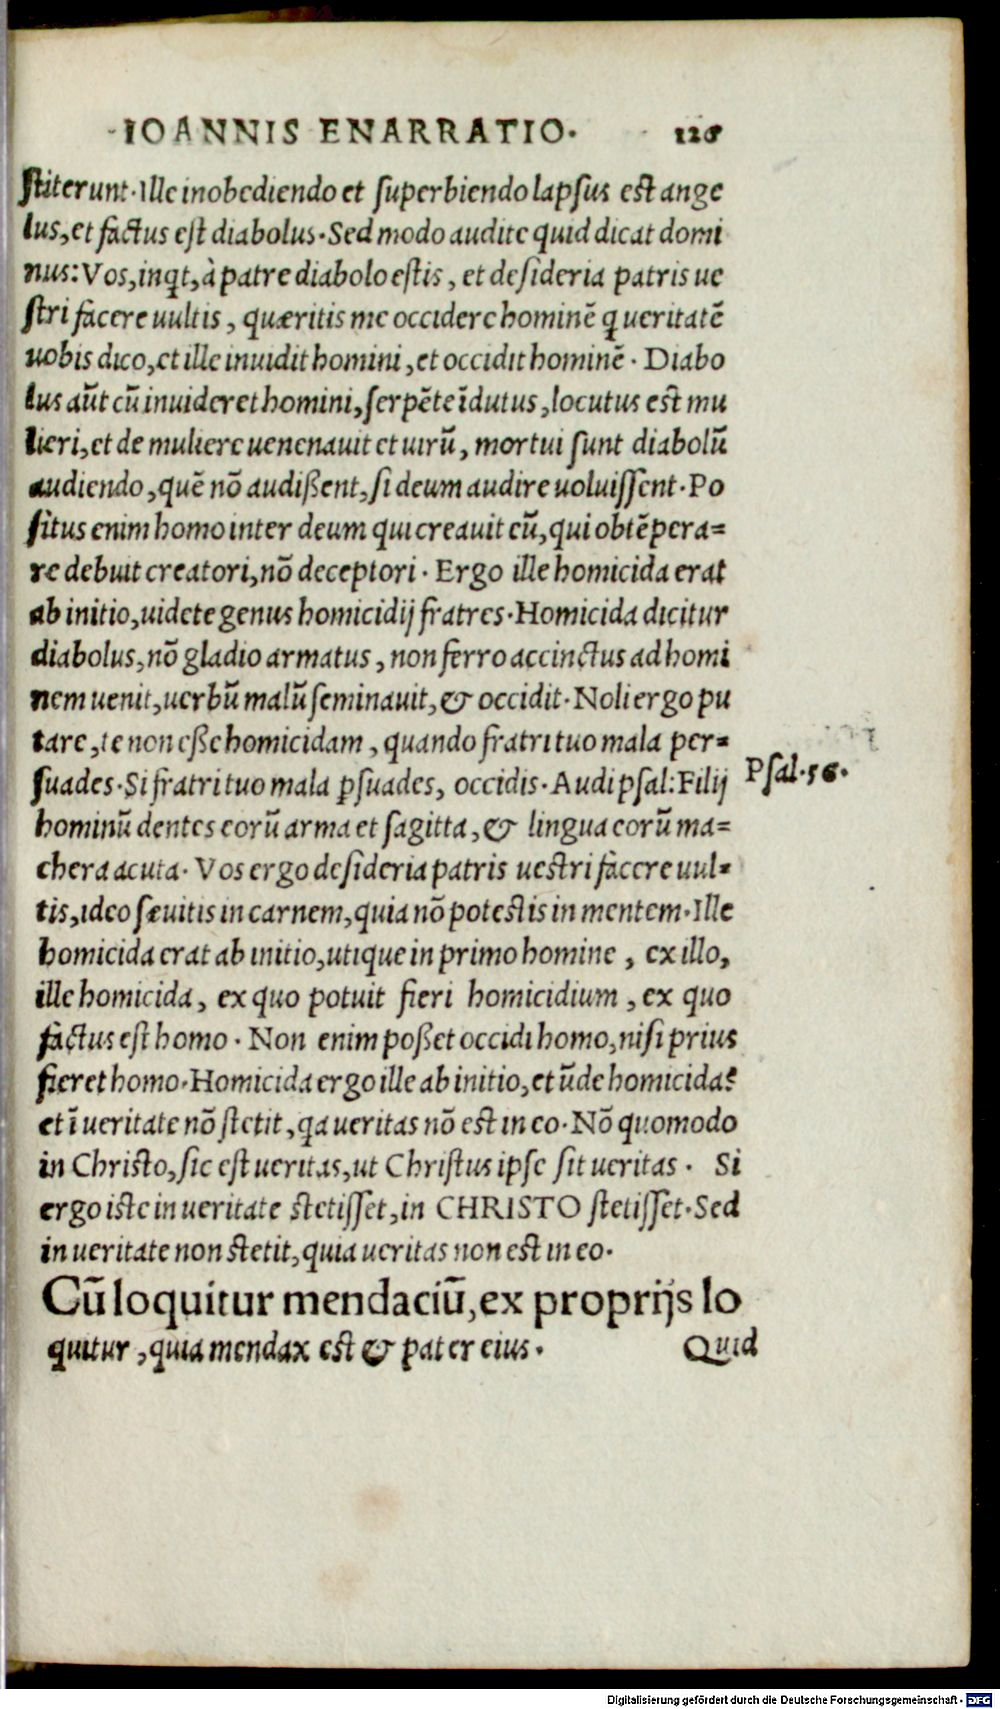 IOANNIS ENARRATIO.
ſtiterunt. Ille inobediendo et ſuperbiendo lapſus est ange
lus, et factus eſt diabolus. Sed modo audite quid dicat domi
nus: Vos, inqt, à patre diabolo eſtis, et deſideria patris ue
ſtri facere uultis, quæritis me occidere hominē q ueritatē
uobis dico, et ille inuidit homini, et occidit hominē. Diabo
lus aūt cū inuideret homini, ſerpēte īdutus, locutus est mu
lieri, et de muliere uenenauit et uirū, mortui ſunt diabolū
audiendo, quē nō audißent, ſi deum audire uoluiſſent. Po
ſitus enim homo inter deum qui creauit eū, qui obtēpera=
re debuit creatori, nō deceptori. Ergo ille homicida erat
ab initio, uidete genus homicidij fratres. Homicida dicitur
diabolus, nō gladio armatus, non ferro accinctus ad homi
nem uenit, uerbū malū ſeminauit, & occidit. Noli ergo pu
tare, te non eße homicidam, quando fratri tuo mala per=
ſuades. Si fratri tuo mala ꝑſuades, occidis. Audi pſal: Filij
Pſal. 56.
hominū dentes eorū arma et ſagitta, & lingua eorū ma=
chera acuta. Vos ergo deſideria patris ueſtri facere uul=
tis, ideo ſæuitis in carnem, quia nō poteſtis in mentem. Ille
homicida erat ab initio, utique in primo homine, ex illo,
ille homicida, ex quo potuit fieri homicidium, ex quo
factus eſt homo. Non enim poßet occidi homo, niſi prius
fieret homo. Homicida ergo ille ab initio, et ūde homicida?
et ī ueritate nō ſtetit, qa ueritas nō est in eo. Nō quomodo
in Chriſto, ſic eſt ueritas, ut Chriſtus ipſe ſit ueritas. Si
ergo iſte in ueritate ſtetiſſet, in CHRISTO ſtetiſſet. Sed
in ueritate non ſtetit, quia ueritas non est in eo.
Cū loquitur mendaciū, ex proprijs lo
quitur, quia mendax est & pater eius.
Quid
Digitalisierung gefördert durch die Deutsche Forschungsgemeinschaft - DFG